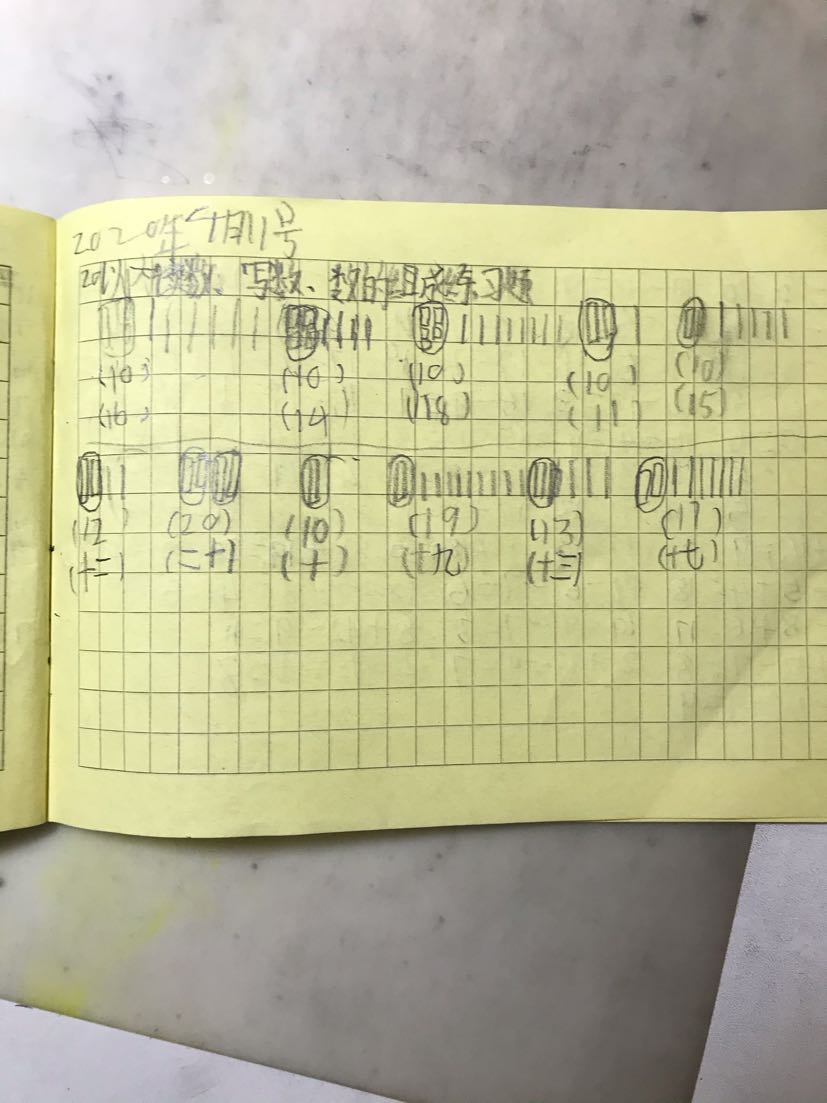 2020年十月11号
20以内读数、写数、数的组成练习题
(10) (10) (10) (10) (10)
(16) (14) (18) (11) (15)
(12) (20) (10) (19) (13) (17)
(十二) (二十) (十) (十九) (十三) (十七)